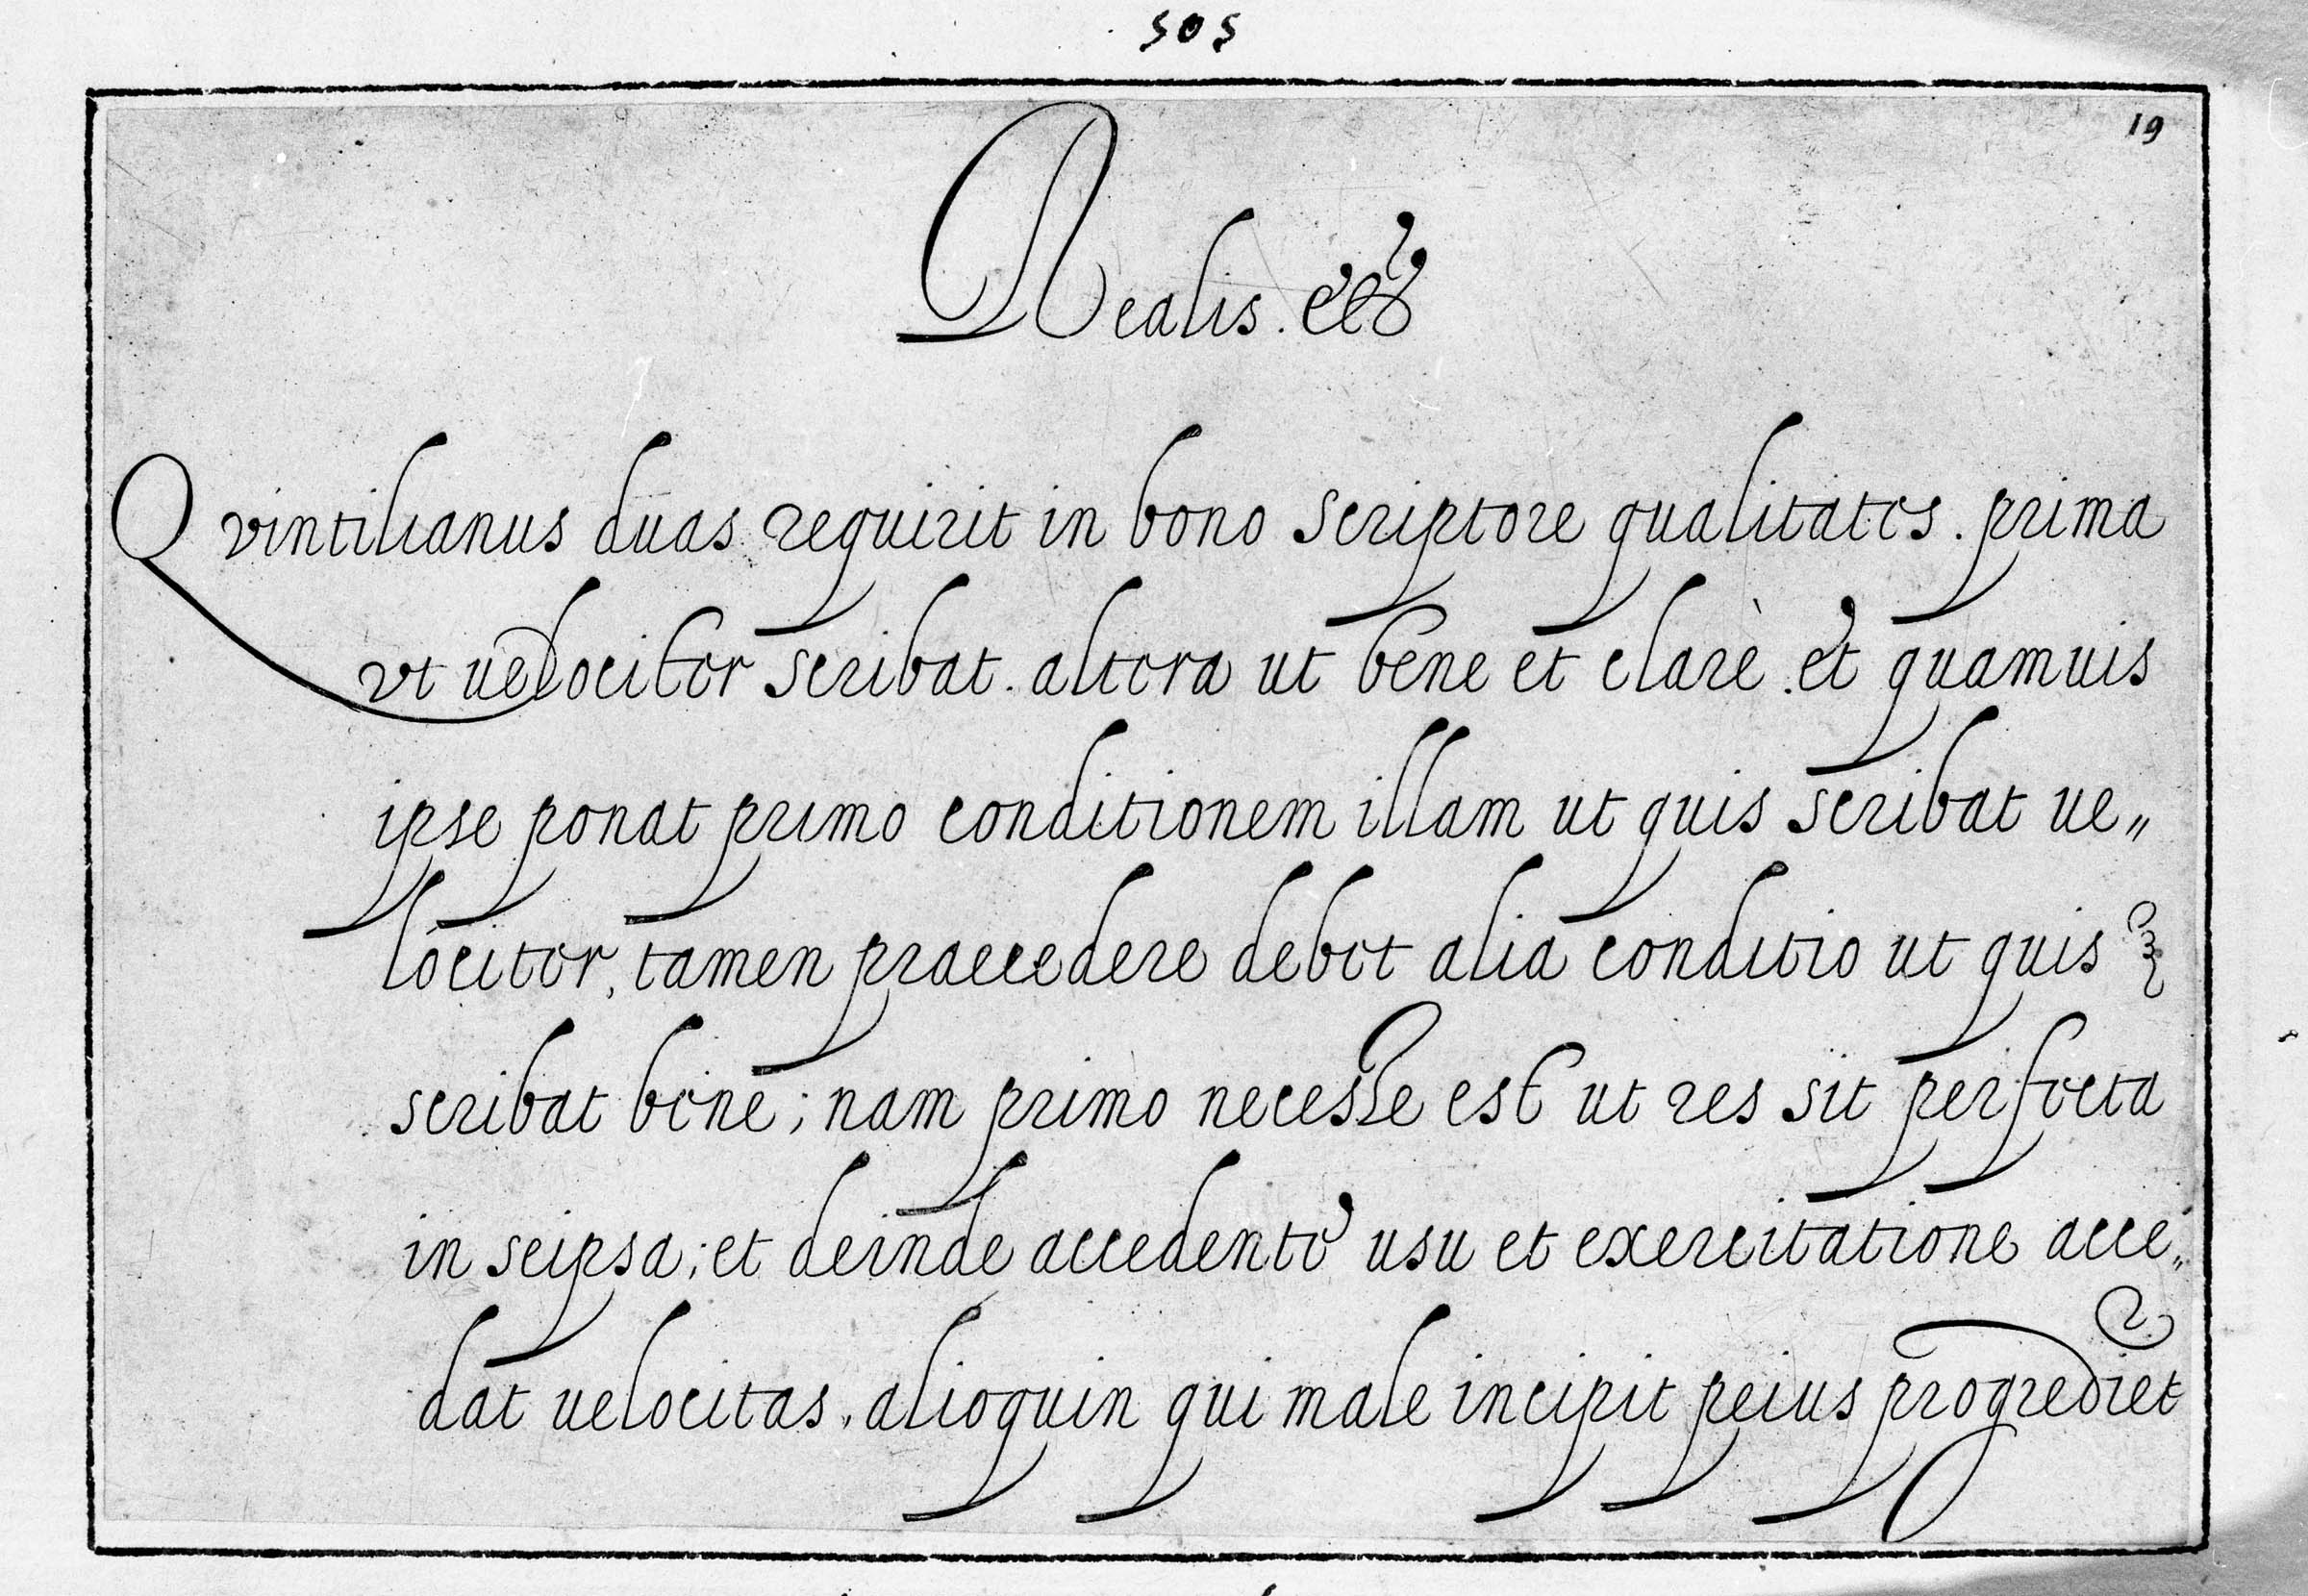 505
19
Realis. etc
Qvintilianus duas requirit in bono scriptore qualitates. prima
vt uelociter scribat. altera ut bene et clarè. et quamuis
ipse ponat primo conditionem illam ut quis scribat ue„
lociter, tamen praecedere debet alia conditio ut quis
scribat bene; nam primo necesse est ut res sit perfecta
in seipsa; et deinde accedente usu et exercitatione acce„
dat uelocitas. alioquin qui male incipit peius progrediet